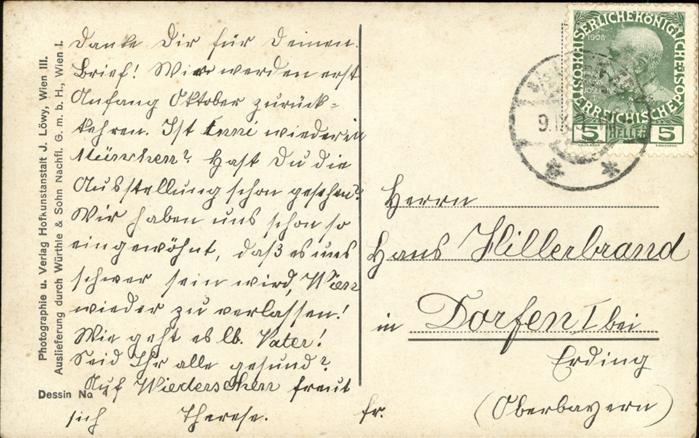 Danke Dir für Deinen
Brief! Wir werden erst
Anfang Oktober zurück-
kehren. Ist Anni wieder in
München? Hast Du die
Ausstellung schon gesehen?
Wir haben uns schon so
eingewöhnt, daß es uns
schwer sein wird, Wien
wieder zu verlassen!
Wie geht es lb. Vater!
Seid Ihr alle gesund?
Auf Wiedersehen freut
sich Therese.
Herrn
Hans Hillerbrand
in Dorfen I bei
Erding
fr. (Oberbayern)
Photographie u. Verlag Hofkunstanstalt J. Löwy, Wien III.
Auslieferung durch Würthle & Sohn Nachfl. G. m. b. H., Wien I.
Dessin No
KAISERLICHE KÖNIGLICHE
ÖSTERREICHISCHE POST
1908
5 HELLER 5
9.IX